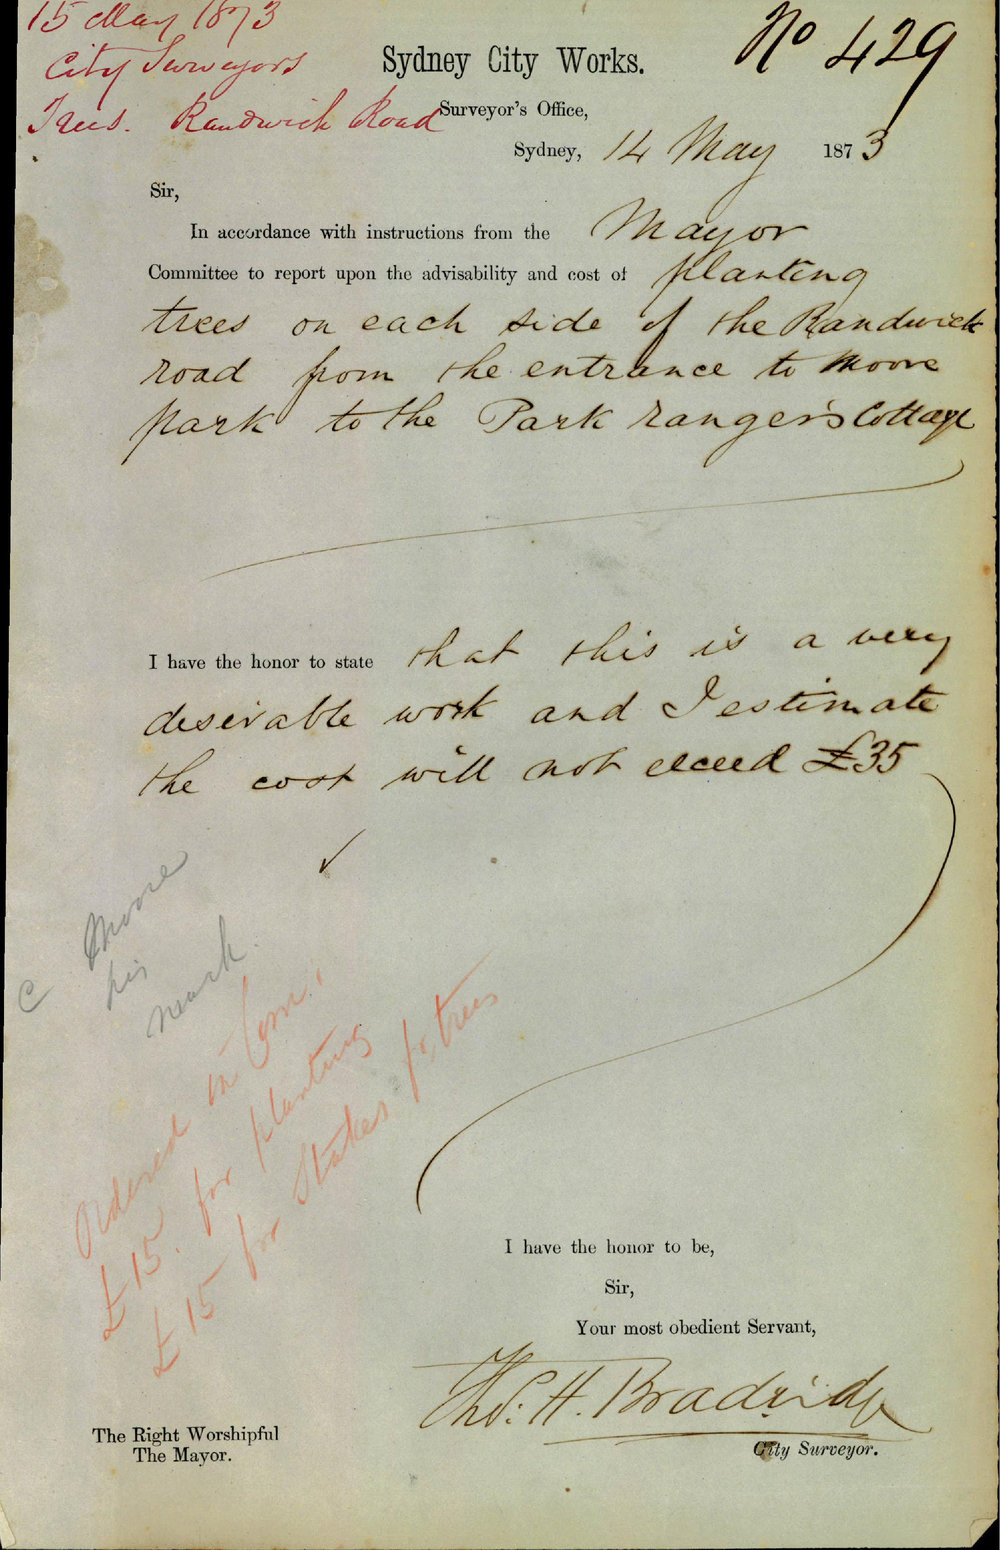 15 May 1873
City Surveyors
Trees. Randwick Road
No 429
Sydney City Works.
Surveyor's Office,
Sydney, 14 May 1873
Sir,
In accordance with instructions from the Mayor
Committee to report upon the advisability and cost of planting
trees on each side of the Randwick
road from the entrance to Moore
park to the Park rangers Cottage
I have the honor to state that this is a very
desirable work and I estimate
the cost will not exceed £35
C Moore
his
mark.
Ordered in Com.
£15. for planting
£15 for Stakes for trees
I have the honor to be,
Sir,
Your most obedient Servant,
Thos. H. Bradridge
City Surveyor.
The Right Worshipful
The Mayor.